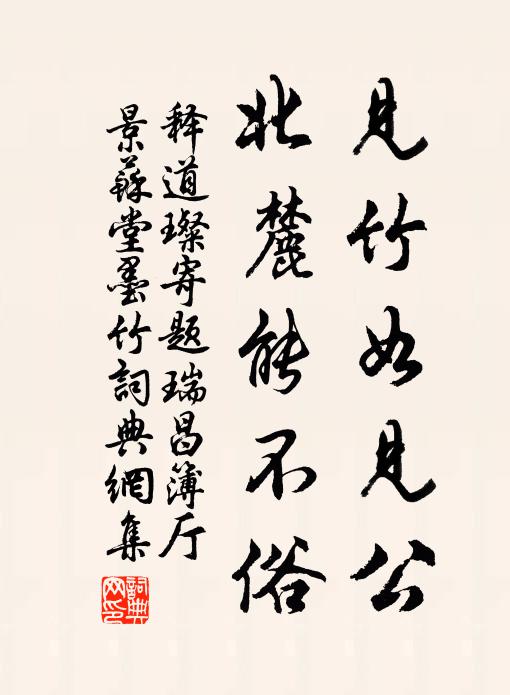 见竹如见公
北麓能不俗
释道璨寄题瑞昌簿厅
景蘇堂墨竹詞典網集
詞典网印